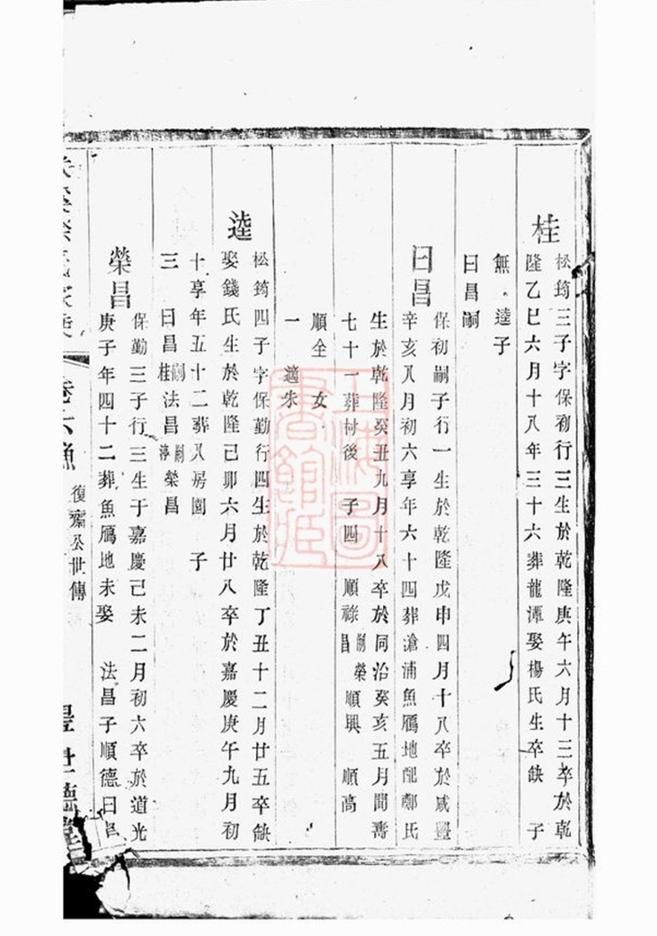 桂
松筠三子字保初行三生於乾隆庚午六月十三卒於乾
隆乙巳六月十八年三十六葬龍潭娶楊氏生卒缺 子
無 逵子
曰昌嗣
曰昌
保初嗣子行一生於乾隆戊申四月十八卒於咸豐
辛亥八月初六享年六十四葬滄浦魚鴈地配鄭氏
生於乾隆癸丑九月十八卒於同治癸亥五月間壽
七十一葬村後 子四 順祿嗣榮昌順興 順高
順全 女
一 適朱
逵
松筠四子字保勤行四生於乾隆丁丑十二月廿五卒缺
娶錢氏生於乾隆己卯六月廿八卒於嘉慶庚午九月初
十享年五十二葬八房園 子
三 曰昌嗣桂法昌嗣榮昌
榮昌
保勤三子行三生于嘉慶己未二月初六卒於道光
庚子年四十二葬魚鴈地未娶 法昌子順德曰昌
卷六漁
復齋公世傳
世德